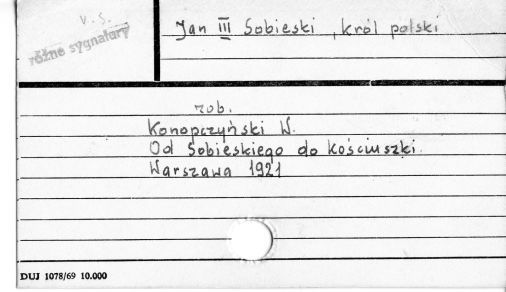 V. S.
różne sygnatury
Jan III Sobieski, król polski
zob.
Konopczyński W.
Od Sobieskiego do Kościuszki.
Warszawa 1921
DUJ 1078/69 10.000